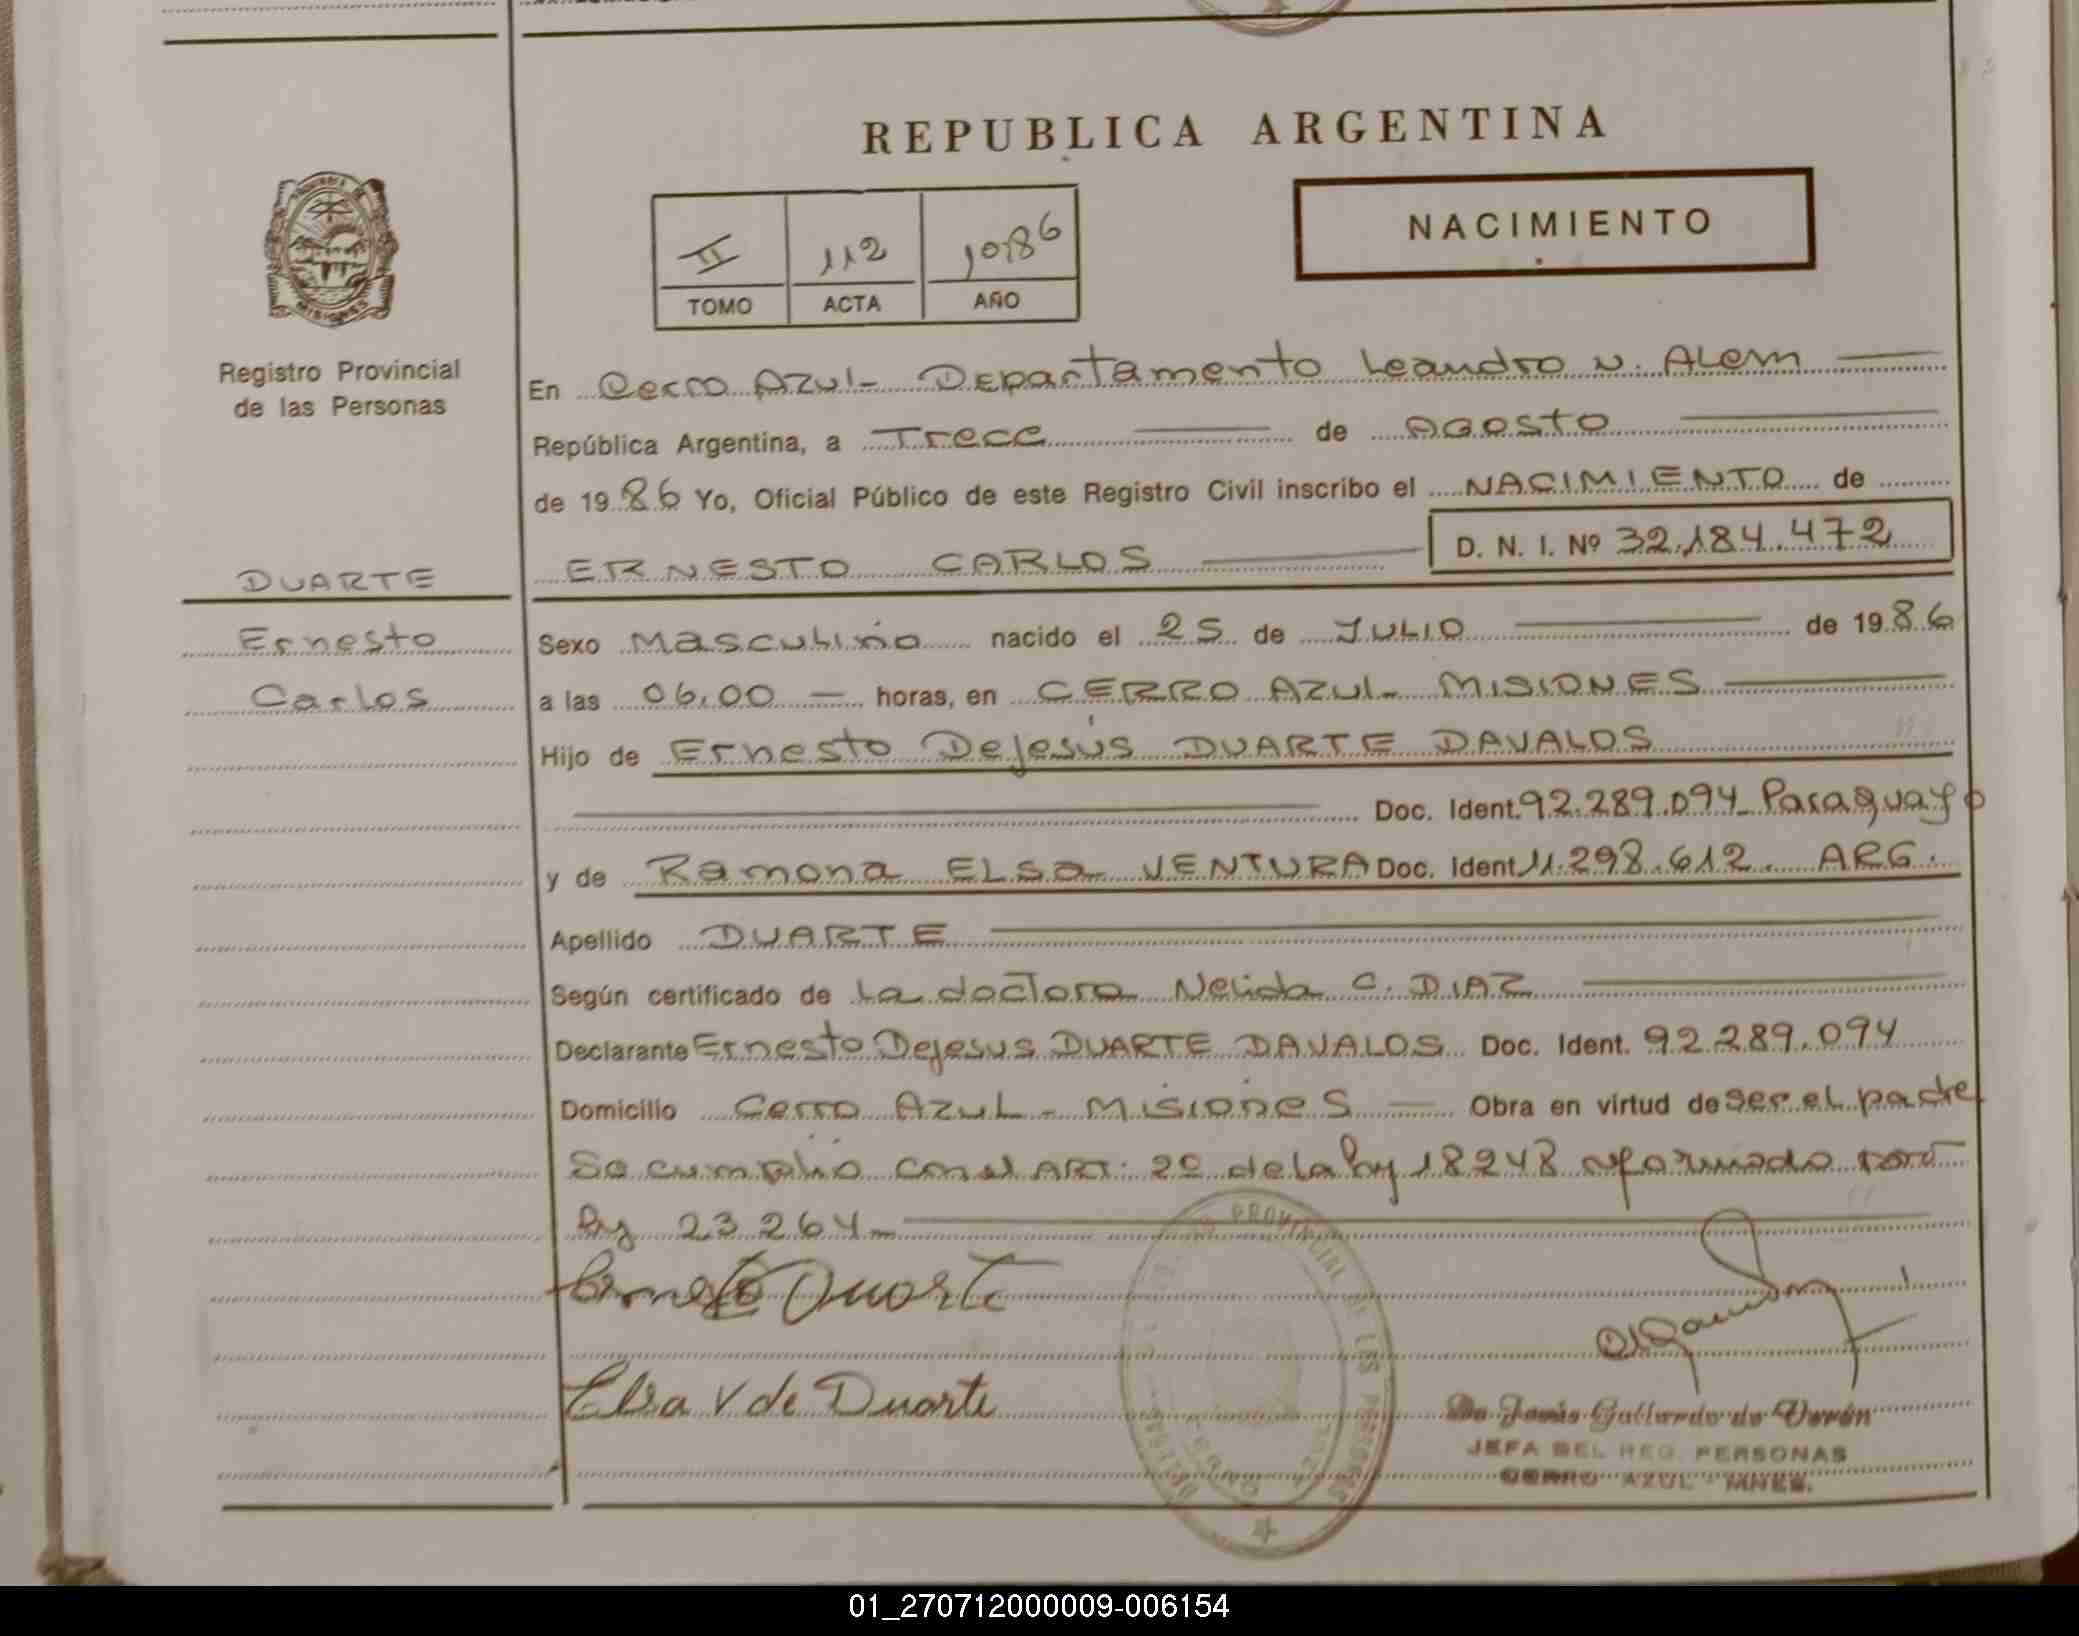 REPUBLICA ARGENTINA
NACIMIENTO
II 112 1986
TOMO ACTA AÑO
MISIONES
Registro Provincial
de las Personas
En Cerro Azul - Departamento Leandro N. Alem
República Argentina, a Trece de Agosto
de 1986 Yo, Oficial Público de este Registro Civil inscribo el NACIMIENTO de
DUARTE ERNESTO CARLOS D. N. I. Nº 32.184.472
Ernesto Sexo Masculino nacido el 25 de JULIO de 1986
Carlos a las 06,00 horas, en CERRO AZUL - MISIONES
Hijo de Ernesto Dejesús DUARTE DAVALOS
Doc. Ident. 92.289.094 - Paraguayo
y de Ramona ELSA VENTURA Doc. Ident 11.298.612. ARG.
Apellido DUARTE
Según certificado de la doctora Nelida C. DIAZ
Declarante Ernesto Dejesus DUARTE DAVALOS Doc. Ident. 92.289.094
Domicilio Cerro AZUL - Misiones Obra en virtud de ser el padre
Se cumplió con el ART: 2º de la ley 18248 reformado por
ley 23264 -
PROVINCIAL DE LAS PERSONAS
Ernesto Duarte
Elsa V de Duarte
de Jesús Gallardo de Verón
JEFA DEL REG. PERSONAS
CERRO AZUL - MNES.
01_270712000009-006154